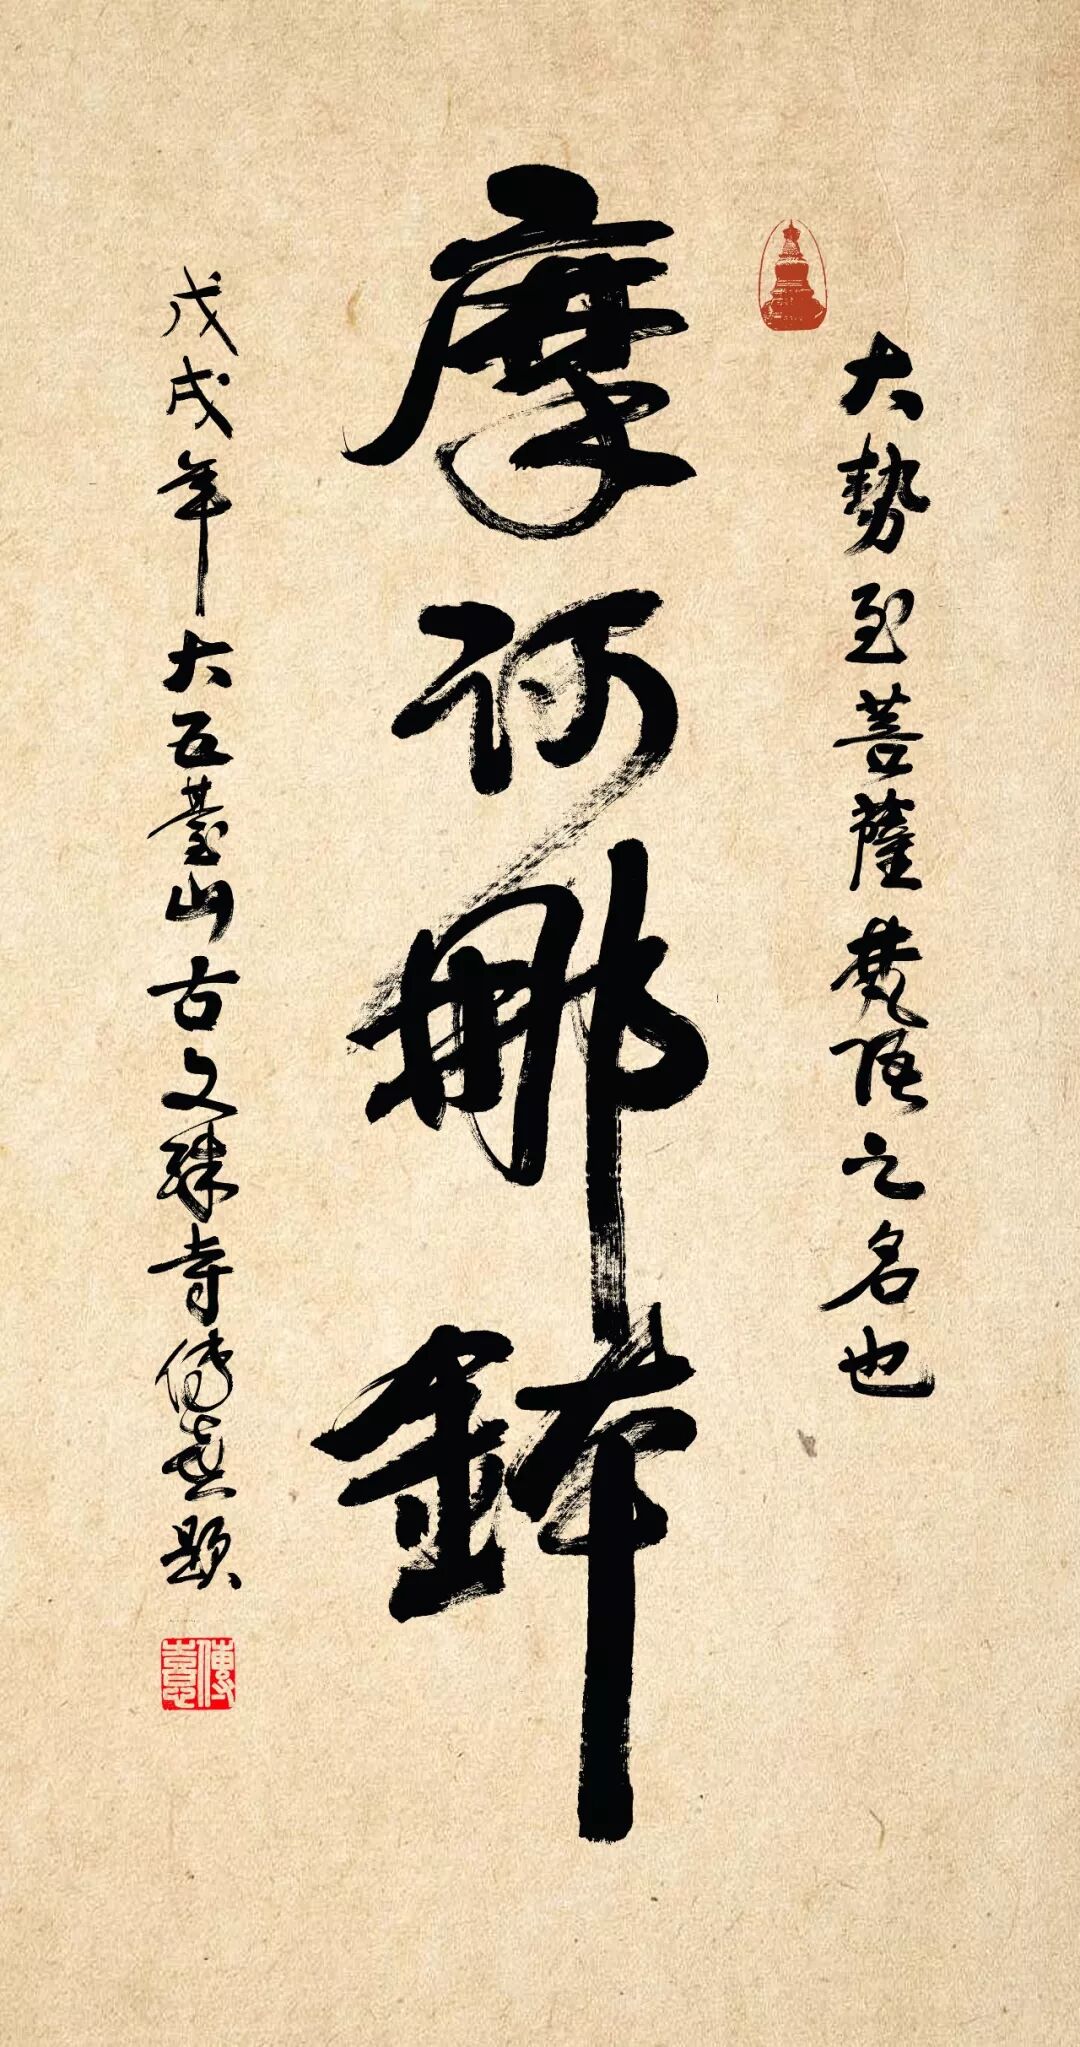 大勢至菩薩梵語之名也
摩訶那鉢
戊戌年大五臺山古文殊寺傳喜題
傳喜